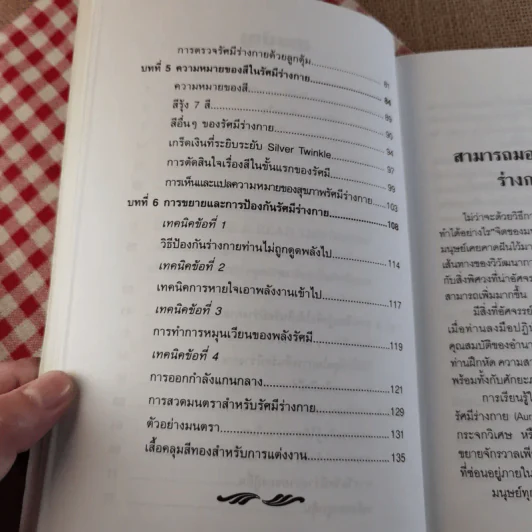 การตรวจรัศมีร่างกายด้วยลูกตุ้ม.................... 81
บทที่ 5 ความหมายของสีในรัศมีร่างกาย.................... 84
ความหมายของสี.................... 89
สีรุ้ง 7 สี.................... 95
สีอื่นๆ ของรัศมีร่างกาย.................... 94
เกร็ดเงินที่ระยิบระยับ Silver Twinkle.................... 97
การตัดสินใจเรื่องสีในชั้นแรกของรัศมี.................... 99
การเห็นและแปลความหมายของสุขภาพรัศมีร่างกาย.......103
บทที่ 6 การขยายและการป้องกันรัศมีร่างกาย....................108
เทคนิคข้อที่ 1
วิธีป้องกันร่างกายท่านไม่ถูกดูดพลังไป....................114
เทคนิคข้อที่ 2
เทคนิคการหายใจเอาพลังงานเข้าไป....................117
เทคนิคข้อที่ 3
การทำการหมุนเวียนของพลังรัศมี....................119
เทคนิคข้อที่ 4
การออกกำลังแกนกลาง....................121
การสวดมนตราสำหรับรัศมีร่างกาย....................129
ตัวอย่างมนตรา....................131
เสื้อคลุมสีทองสำหรับการแต่งงาน....................135
สามารถมอ
ร่างก
ไม่ว่าจะด้วยวิธีกา
ทำได้อย่างไร"จิตของม
มนุษย์เคยคาดฝันไว้มา
เส้นทางของวิวัฒนากา
กับสิ่งพิศวงที่น่าอัศจร
สามารถเพิ่มมากขึ้น
มีสิ่งที่อัศจรร
เมื่อท่านลงมือปฏิ
คุณสมบัติของอำนา
ท่านฝึกหัด ความสา
พร้อมทั้งกับศักยะ
การเรียนรู้ใ
รัศมีร่างกาย (Aur
กระจกวิเศษ หรื
ขยายจักรวาลเพื่
ที่ซ่อนอยู่ภายใน
มนุษย์ทุก